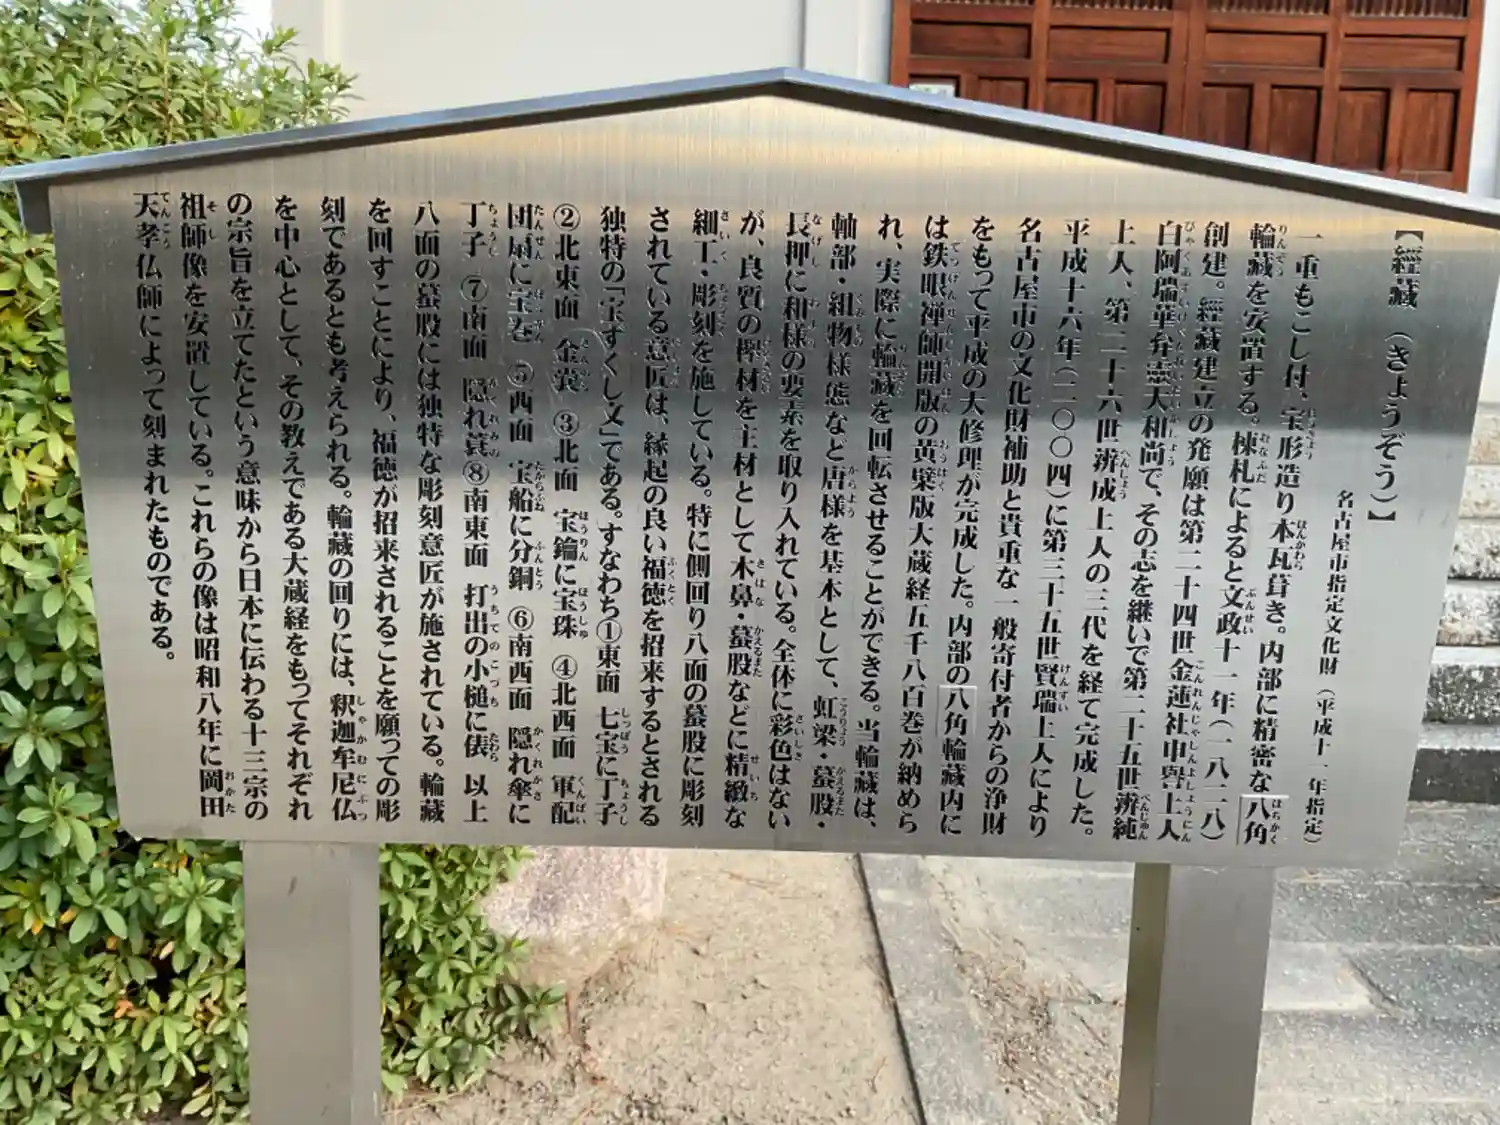 【經藏 （きょうぞう）】
名古屋市指定文化財 （平成十一年指定）
一重もこし付、宝形造り本瓦葺き。内部に精密な八角
輪藏を安置する。棟札によると文政十一年（一八二八）
創建。經藏建立の発願は第二十四世金蓮社申譽上人
白阿瑞華弁憲大和尚で、その志を継いで第二十五世辨純
上人、第二十六世辨成上人の三代を経て完成した。
平成十六年（二〇〇四）に第三十五世賢瑞上人により
名古屋市の文化財補助と貴重な一般寄付者からの浄財
をもって平成の大修理が完成した。内部の八角輪藏内に
は鉄眼禅師開版の黄檗版大蔵経五千八百巻が納めら
れ、実際に輪藏を回転させることができる。当輪藏は、
軸部・組物様態など唐様を基本として、虹梁・蟇股・
長押に和様の要素を取り入れている。全体に彩色はない
が、良質の欅材を主材として木鼻・蟇股などに精緻な
細工・彫刻を施している。特に側回り八面の蟇股に彫刻
されている意匠は、縁起の良い福徳を招来するとされる
独特の「宝づくし文」である。すなわち①東面 七宝に丁子
②北東面 金嚢 ③北面 宝鑰に宝珠 ④北西面 軍配
団扇に宝巻 ⑤西面 宝船に分銅 ⑥南西面 隠れ傘に
丁子 ⑦南面 隠れ蓑⑧南東面 打出の小槌に俵 以上
八面の蟇股には独特な彫刻意匠が施されている。輪藏
を回すことにより、福徳が招来されることを願っての彫
刻であるとも考えられる。輪藏の回りには、釈迦牟尼仏
を中心として、その教えである大蔵経をもってそれぞれ
の宗旨を立てたという意味から日本に伝わる十三宗の
祖師像を安置している。これらの像は昭和八年に岡田
天孝仏師によって刻まれたものである。